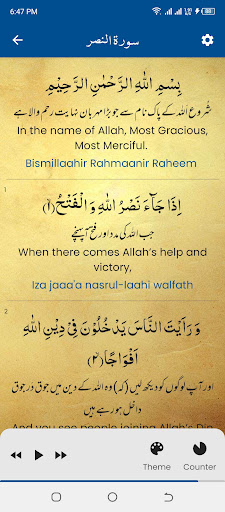 6:47 PM
سورة النصر
بِسْمِ اللّٰهِ الرَّحْمٰنِ الرَّحِيْمِ
شروع اللہ کے پاک نام سے جو بڑا مہربان نہایت رحم والا ہے
In the name of Allah, Most Gracious,
Most Merciful.
Bismillaahir Rahmaanir Raheem
1
اِذَا جَآءَ نَصْرُ اللّٰهِ وَ الْفَتْحُ(۱)
جب اللہ کی مدد اور فتح آ پہنچے
When there comes Allah's help and
victory,
Iza jaaa'a nasrul-laahi walfath
2
وَ رَاَیْتَ النَّاسَ یَدْخُلُوْنَ فِیْ دِیْنِ اللّٰهِ
اَفْوَاجًا(۲)
اور آپ لوگوں کو دیکھ لیں (کہ) وہ اللہ کے دین میں جوق در جوق
داخل ہو رہے ہیں
And you see people joining Allah's Din
Theme
Counter